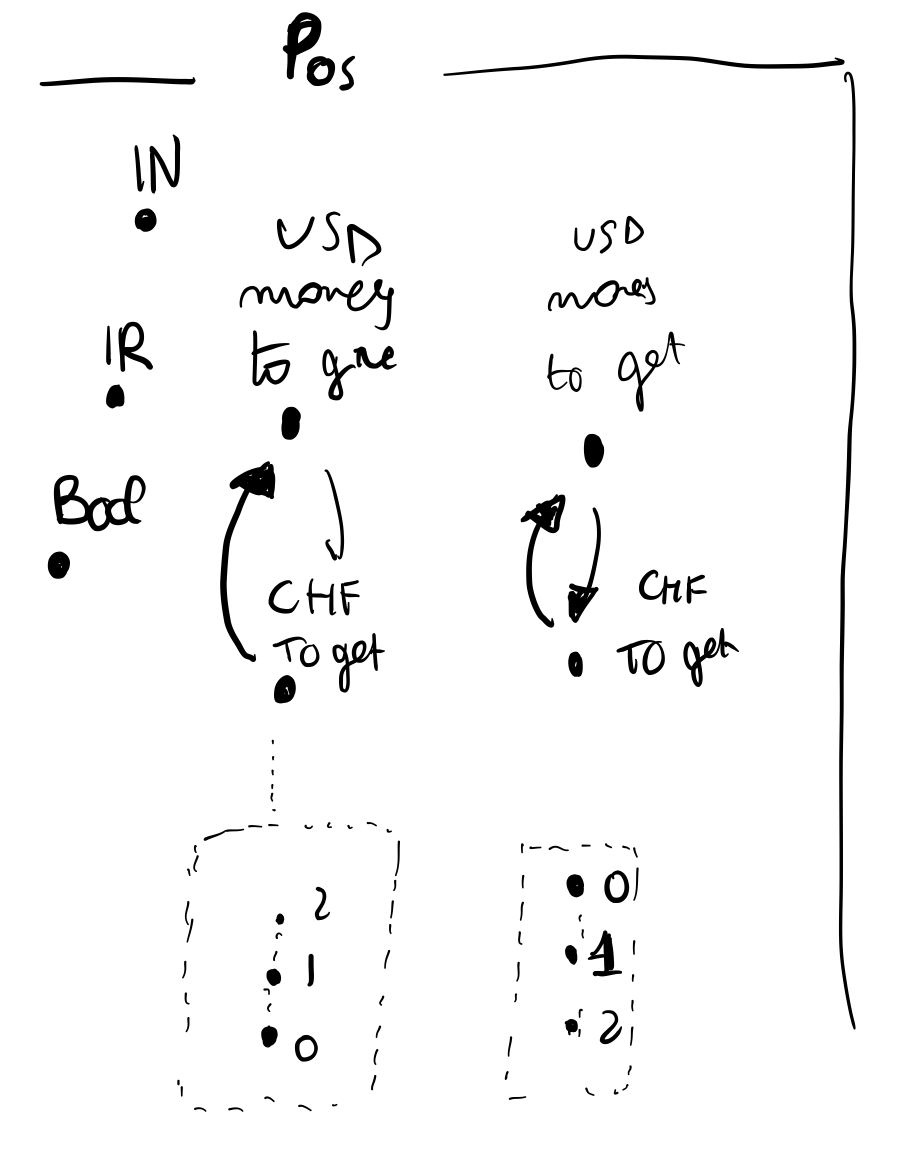 Pos
IN
IR
Bool
USD
money
to give
CHF
To get
USD
money
to get
CHF
TO get
2
1
0
0
1
2